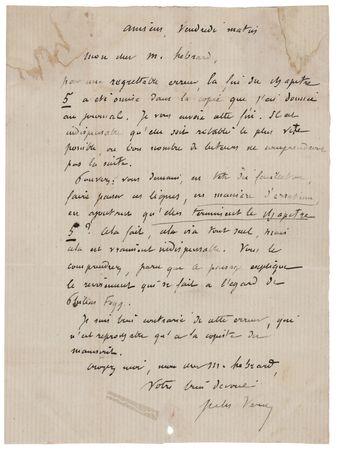 Amiens, Vendredi matin
mon cher M. Hébrard,
par une regrettable erreur la fin du chapitre
5 a été omise dans la copie que j'ai donnée
au journal. Je vous envoie cette fin. Il est
indispensable qu'elle soit rétablie le plus vite
possible, ou bon nombre de lecteurs ne comprendraient
pas la suite.
Pouvez-vous demain, en tête du feuilleton,
faire passer ces lignes, en manière d'erratum,
en ajoutant qu'elles terminent le chapitre
5? Cela fait, cela ira tout seul, mais
cela est vraiment indispensable. Vous le
comprendrez, parce que le passage explique
le revirement qui se fait à l'égard de
Phileas Fogg.
Je suis bien contrarié de cette erreur, qui
n'est reprochable qu'à la copiste du
manuscrit.
Croyez-moi, mon cher M. Hébrard,
Votre bien dévoué
Jules Verne